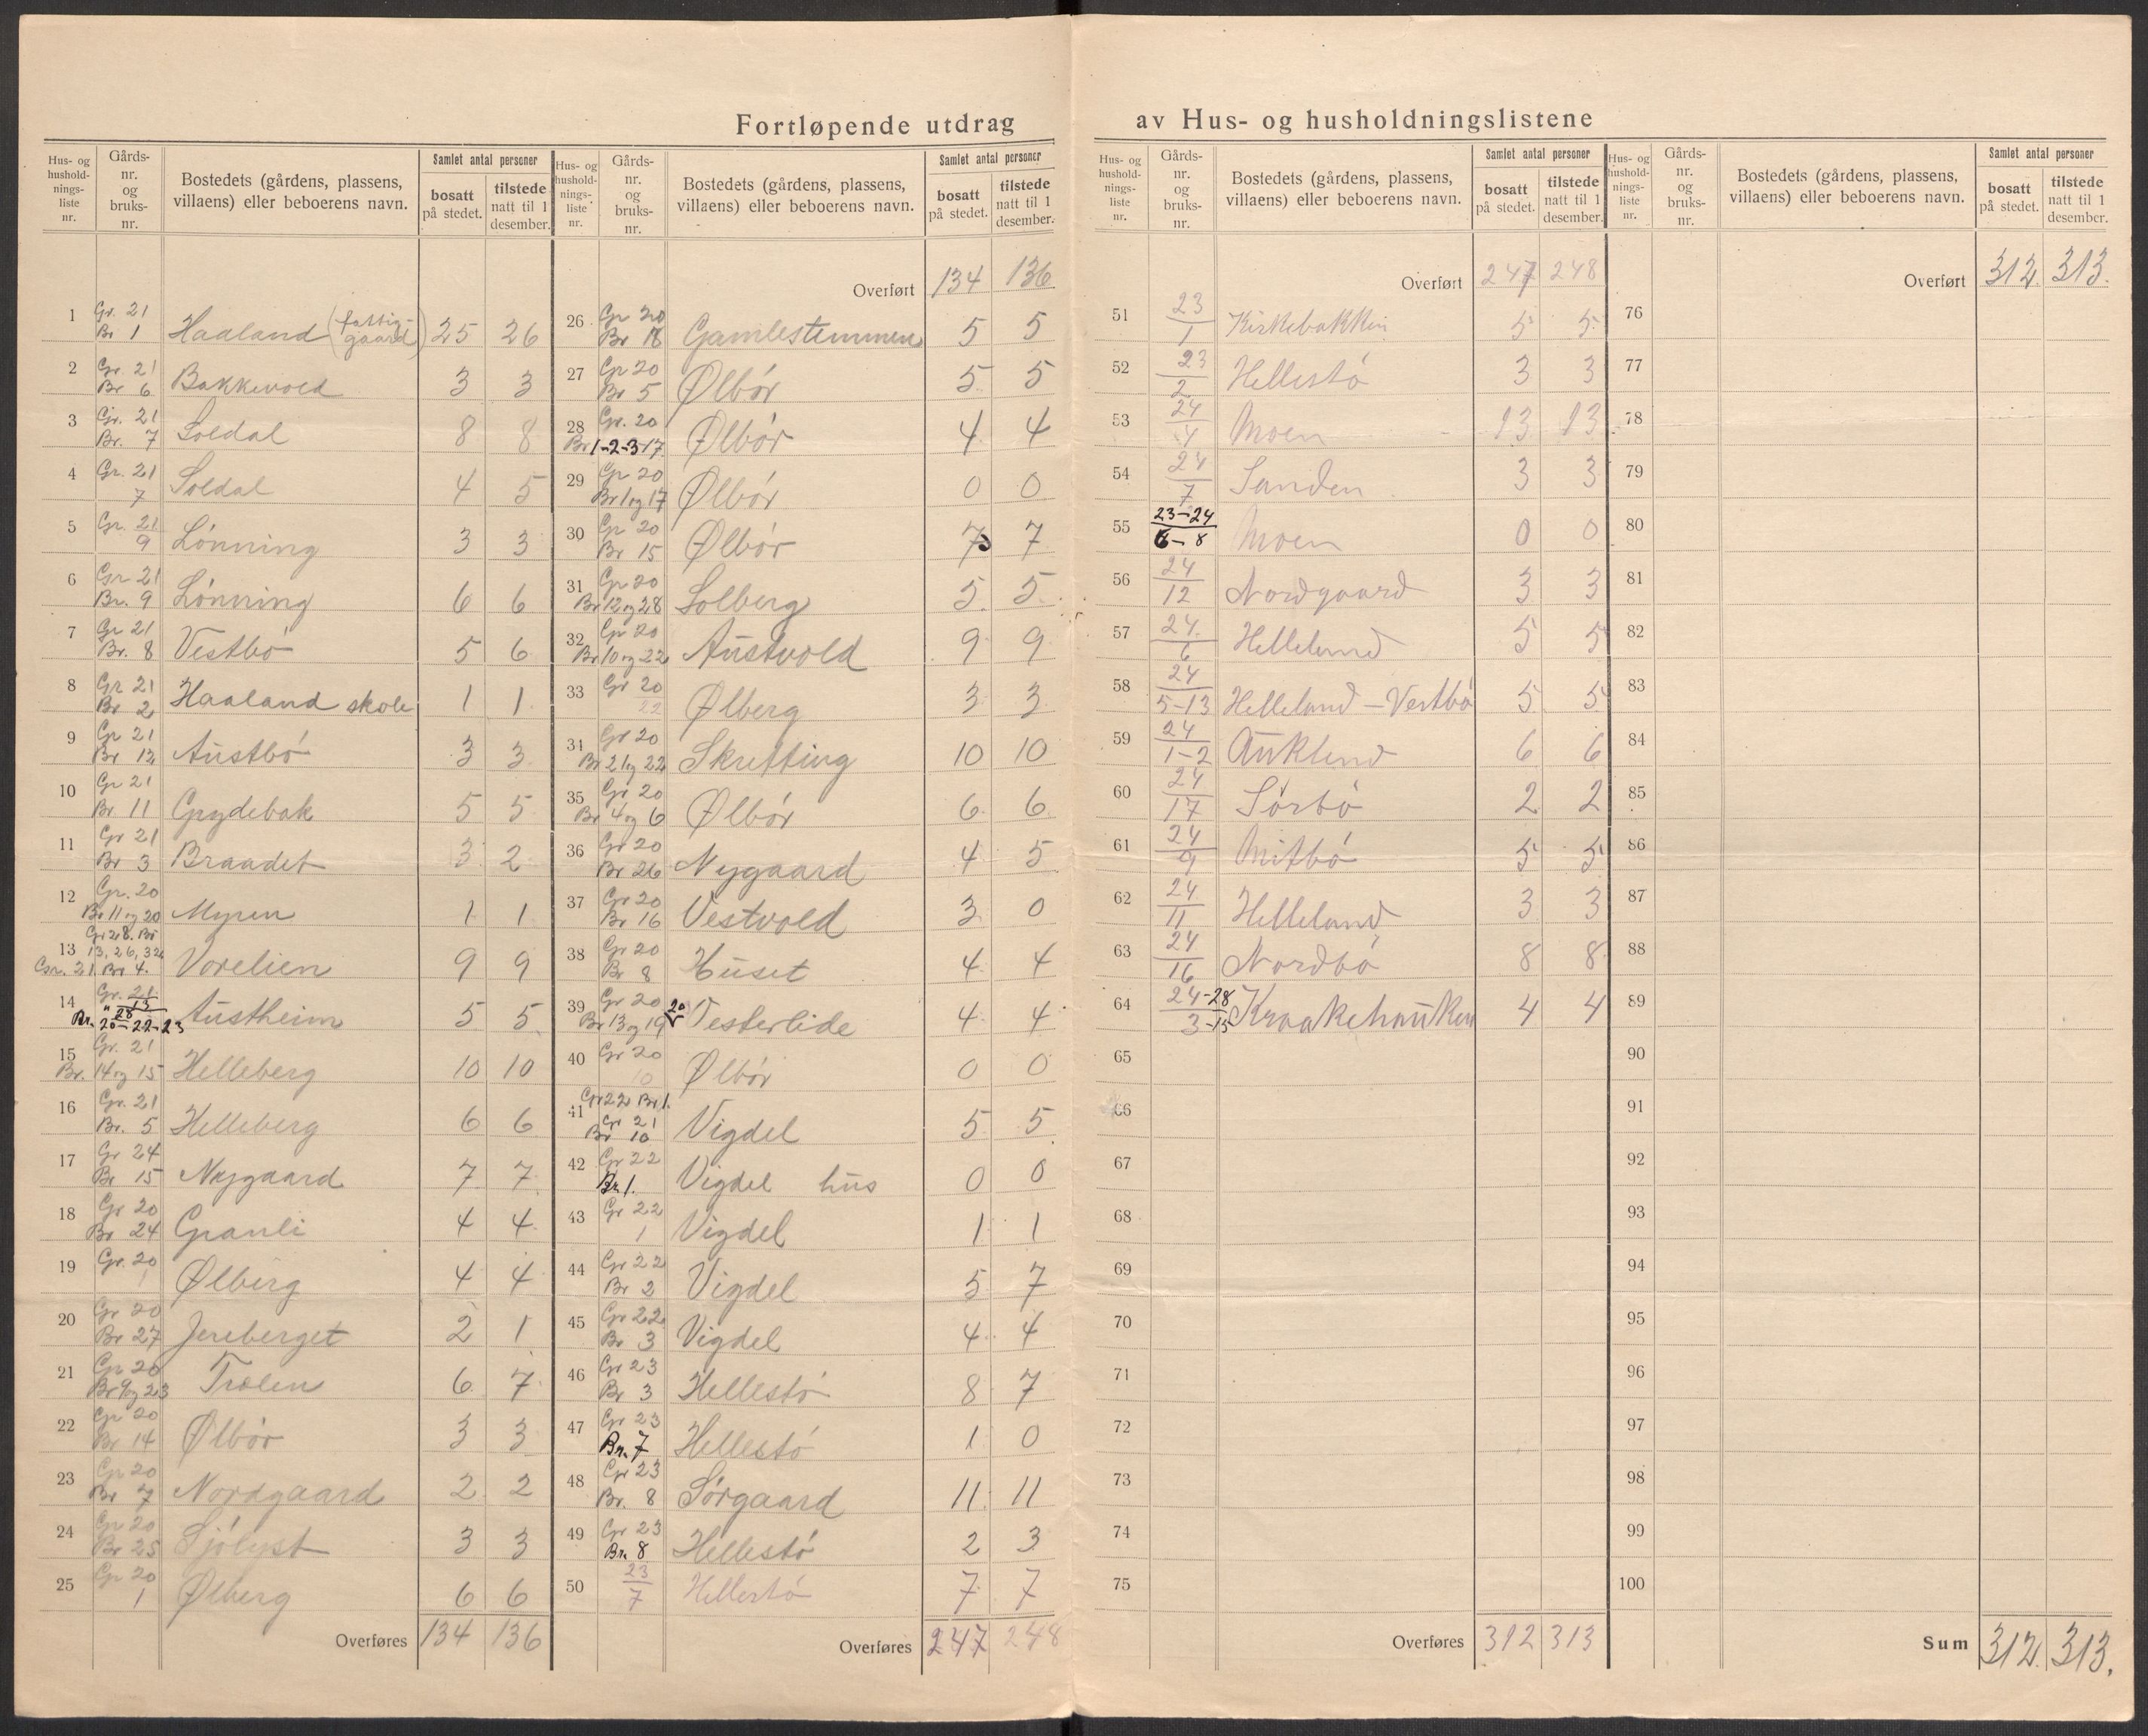 Fortløpende utdrag av Hus- og husholdningslistene
Hus- og hushold-nings-liste nr. | Gårds-nr. og bruks-nr. | Bostedets (gårdens, plassens, villaens) eller beboerens navn. | Samlet antal personer | bosatt på stedet. | tilstede natt til 1 desember.
1 Gr. 21 Br 1 Haaland (fattig-gaard) 25 26
2 Gr. 21 Br 6 Bakkevold 3 3
3 Gr. 21 Br. 7 Soldal 8 8
4 Gr. 21 7 Soldal 4 5
5 Gr. 21 9 Lönning 3 3
6 Gr 21 Br. 9 Lönning 6 6
7 Gr 21 Br. 8 Vestbö 5 6
8 Gr 21 Br 2 Haaland skole 1 1
9 Gr 21 Br 12 Austbö 3 3
10 Gr 21 Br. 11 Grydebak 5 5
11 Gr 21 Br 3 Braadet 3 2
12 Gr. 20 Br 11 og 20 Myren 1 1
13 Gr 28. Br 13, 26, 32 Gr. 21 Br 4. Vorelien 9 9
14 Gr. 21 13 " 28 Br. 20-22-23 Austheim 5 5
15 Gr. 21 Br. 14 og 15 Helleberg 10 10
16 Gr. 21 Br. 5 Helleberg 6 6
17 Gr 24 Br 15 Nygaard 7 7
18 Gr 20 Br 24 Granli 4 4
19 Gr. 20 1 Ølberg 4 4
20 Gr 20 Br 27 Jereberget 2 1
21 Gr 20 Br 9 og 23 Trolen 6 7
22 Gr 20 Br 14 Ølbör 3 3
23 Gr 20 Br 7 Nordgaard 2 2
24 Gr 20 Br 25 Sjölyst 3 3
25 Gr 20 1 Ølberg 6 6
Overføres 134 136
Hus- og hushold-nings-liste nr. | Gårds-nr. og bruks-nr. | Bostedets (gårdens, plassens, villaens) eller beboerens navn. | Samlet antal personer | bosatt på stedet. | tilstede natt til 1 desember.
Overført 134 136
26 Gr 20 Br 18 Gamlestemmen 5 5
27 Gr 20 Br 5 Ølbör 5 5
28 Gr. 20 Br 1-2-3-17 Ølbör 4 4
29 Gr 20 Br 1 og 17 Ølbör 0 0
30 Gr 20 Br 15 Ølbör 7 7
31 Gr 20 Br 12 og 28 Solberg 5 5
32 Gr 20 Br 10 og 22 Austvold 9 9
33 Gr 20 22 Ølberg 3 3
34 Gr 20 Br 21 og 22 Skretting 10 10
35 Gr 20 Br 4 og 6 Ølbör 6 6
36 Gr 20 Br 26 Nygaard 4 5
37 Gr 20 Br 16 Vestvold 3 0
38 Gr 20 Br 8 Huset 4 4
39 Gr 20 Br 13 og 19 20 Vesterlide 4 4
40 Gr 20 10 Ølbör 0 0
41 Gr 22 Br 1. Gr 21 Br 10 Vigdel 5 5
42 Gr 22 Br 1. Vigdel hus 0 0
43 Gr 22 1 Vigdel 1 1
44 Gr 22 Br 2 Vigdel 5 7
45 Gr 22 Br 3 Vigdel 4 4
46 Gr 23 Br 3 Hellestö 8 7
47 Gr 23 Br. 7 Hellestö 1 0
48 Gr 23 Br. 8 Sörgaard 11 11
49 Gr 23 Br. 8 Hellestö 2 3
50 23/7 Hellestö 7 7
Overføres 247 248
Hus- og hushold-nings-liste nr. | Gårds-nr. og bruks-nr. | Bostedets (gårdens, plassens, villaens) eller beboerens navn. | Samlet antal personer | bosatt på stedet. | tilstede natt til 1 desember.
Overført 247 248
51 23/1 Kirkebakken 5 5
52 23/2 Hellestö 3 3
53 24/4 Moen 13 13
54 24/7 Sanden 3 3
55 23-24/6-8 Moen 0 0
56 24/12 Nordgaard 3 3
57 24/6 Helleland 5 5
58 24/5-13 Helleland - Vestbö 5 5
59 24/1-2 Auklend 6 6
60 24/17 Sörbö 2 2
61 24/9 Mitbö 5 5
62 24/11 Helleland 3 3
63 24/16 Nordbö 8 8
64 24-28/3-15 Kraakehauken 4 4
65
66
67
68
69
70
71
72
73
74
75
Overføres 312 313
Hus- og hushold-nings-liste nr. | Gårds-nr. og bruks-nr. | Bostedets (gårdens, plassens, villaens) eller beboerens navn. | Samlet antal personer | bosatt på stedet. | tilstede natt til 1 desember.
Overført 312 313.
76
77
78
79
80
81
82
83
84
85
86
87
88
89
90
91
92
93
94
95
96
97
98
99
100
Sum 312. 313.